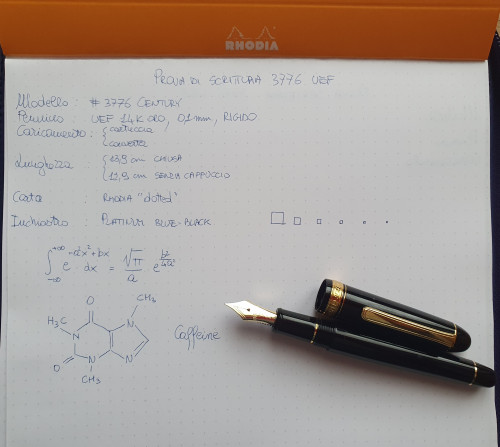 RHODIA
PROVA DI SCRITTURA 3776 UEF
Modello : #3776 CENTURY
Pennino : UEF 14K ORO, 0,1mm, RIGIDO
Caricamento : { cartuccia
{ converter
Lunghezza : { 13,9 cm CHIUSA
{ 11,9 cm SENZA CAPPUCCIO
Carta : RHODIA "dotted"
Inchiostro : PLATINUM BLUE-BLACK
∫ -∞ +∞ e -a²x²+bx dx = √π / a e b²/4a²
CH₃
O
H₃C N N
O N N
CH₃
Caffeine